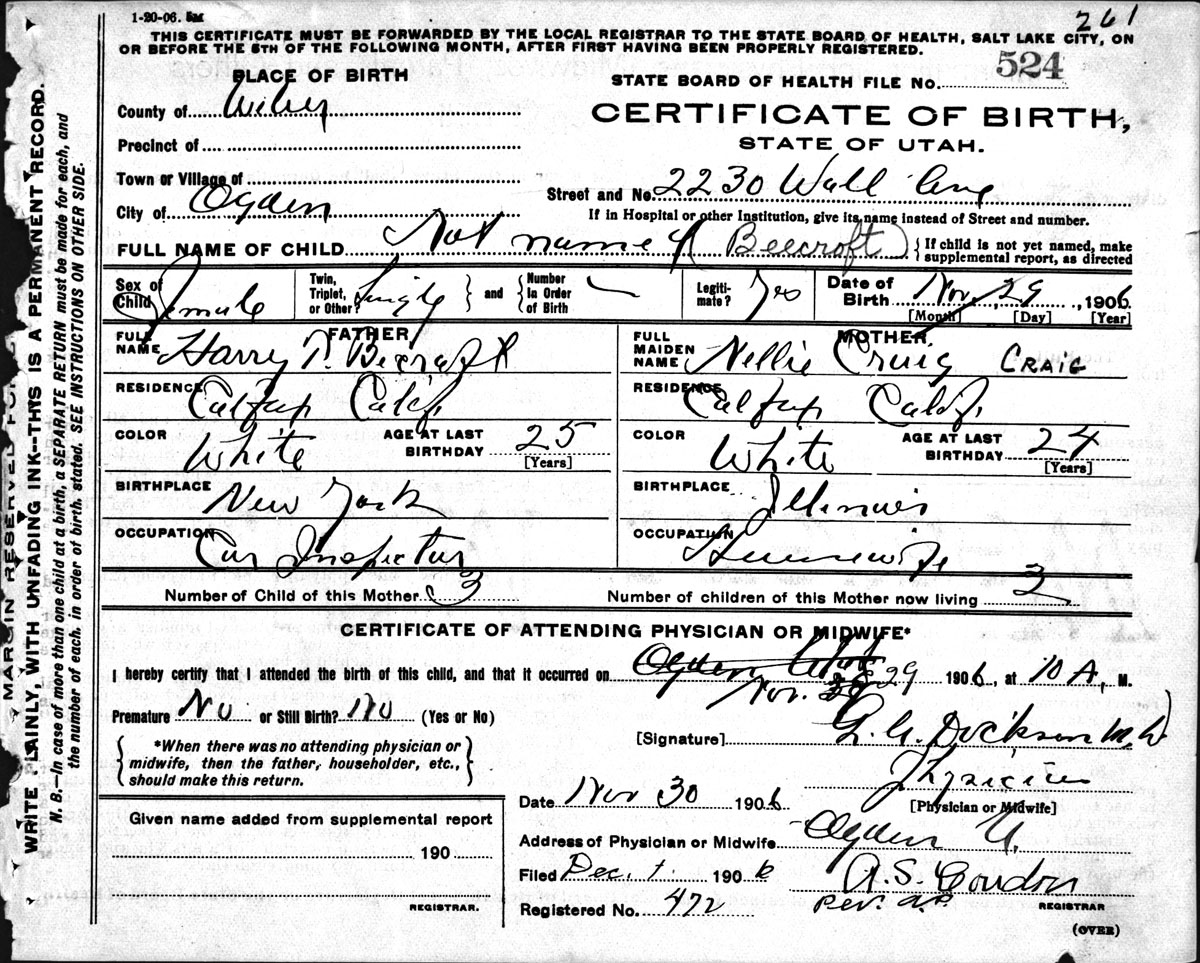 1-20-06. 5M
261
THIS CERTIFICATE MUST BE FORWARDED BY THE LOCAL REGISTRAR TO THE STATE BOARD OF HEALTH, SALT LAKE CITY, ON
OR BEFORE THE 5TH OF THE FOLLOWING MONTH, AFTER FIRST HAVING BEEN PROPERLY REGISTERED.
PLACE OF BIRTH
STATE BOARD OF HEALTH FILE No. 524
County of Weber
CERTIFICATE OF BIRTH,
Precinct of
STATE OF UTAH.
Town or Village of
Street and No. 2230 Wall Ave
City of Ogden
If in Hospital or other Institution, give its name instead of Street and number.
FULL NAME OF CHILD Not named (Beecroft) {If child is not yet named, make supplemental report, as directed
Sex of Child Female Twin, Triplet, or Other? Single } and { Number In Order of Birth — Legitimate? Yes Date of Birth Nov, 29, 1906
[Month] [Day] [Year]
FATHER
FULL NAME Harry T. Becraft
RESIDENCE Calfax Calif.
COLOR White AGE AT LAST BIRTHDAY 25
[Years]
BIRTHPLACE New York
OCCUPATION Car Inspector
MOTHER
FULL MAIDEN NAME Nellie Craig CRAIG
RESIDENCE Calfax Calif.
COLOR White AGE AT LAST BIRTHDAY 24
[Years]
BIRTHPLACE Illinois
OCCUPATION Housewife
Number of Child of this Mother 3 Number of children of this Mother now living 3
CERTIFICATE OF ATTENDING PHYSICIAN OR MIDWIFE*
I hereby certify that I attended the birth of this child, and that it occurred on Ogden Utah Nov. 29 1906, at 10 A, M.
Premature No or Still Birth? No (Yes or No)
[Signature] Dickson M.D
{*When there was no attending physician or
midwife, then the father, householder, etc.,
should make this return.}
Physician
[Physician or Midwife]
Date Nov 30 1906
Address of Physician or Midwife Ogden U.
Filed Dec. 1. 1906 A.S. Condon
REGISTRAR
Registered No. 472 per. a.P.
Given name added from supplemental report
190
REGISTRAR.
(OVER)
MARGIN RESERVED FOR
WRITE PLAINLY, WITH UNFADING INK--THIS IS A PERMANENT RECORD.
N. B.—In case of more than one child at a birth, a SEPARATE RETURN must be made for each, and
the number of each, in order of birth, stated. SEE INSTRUCTIONS ON OTHER SIDE.